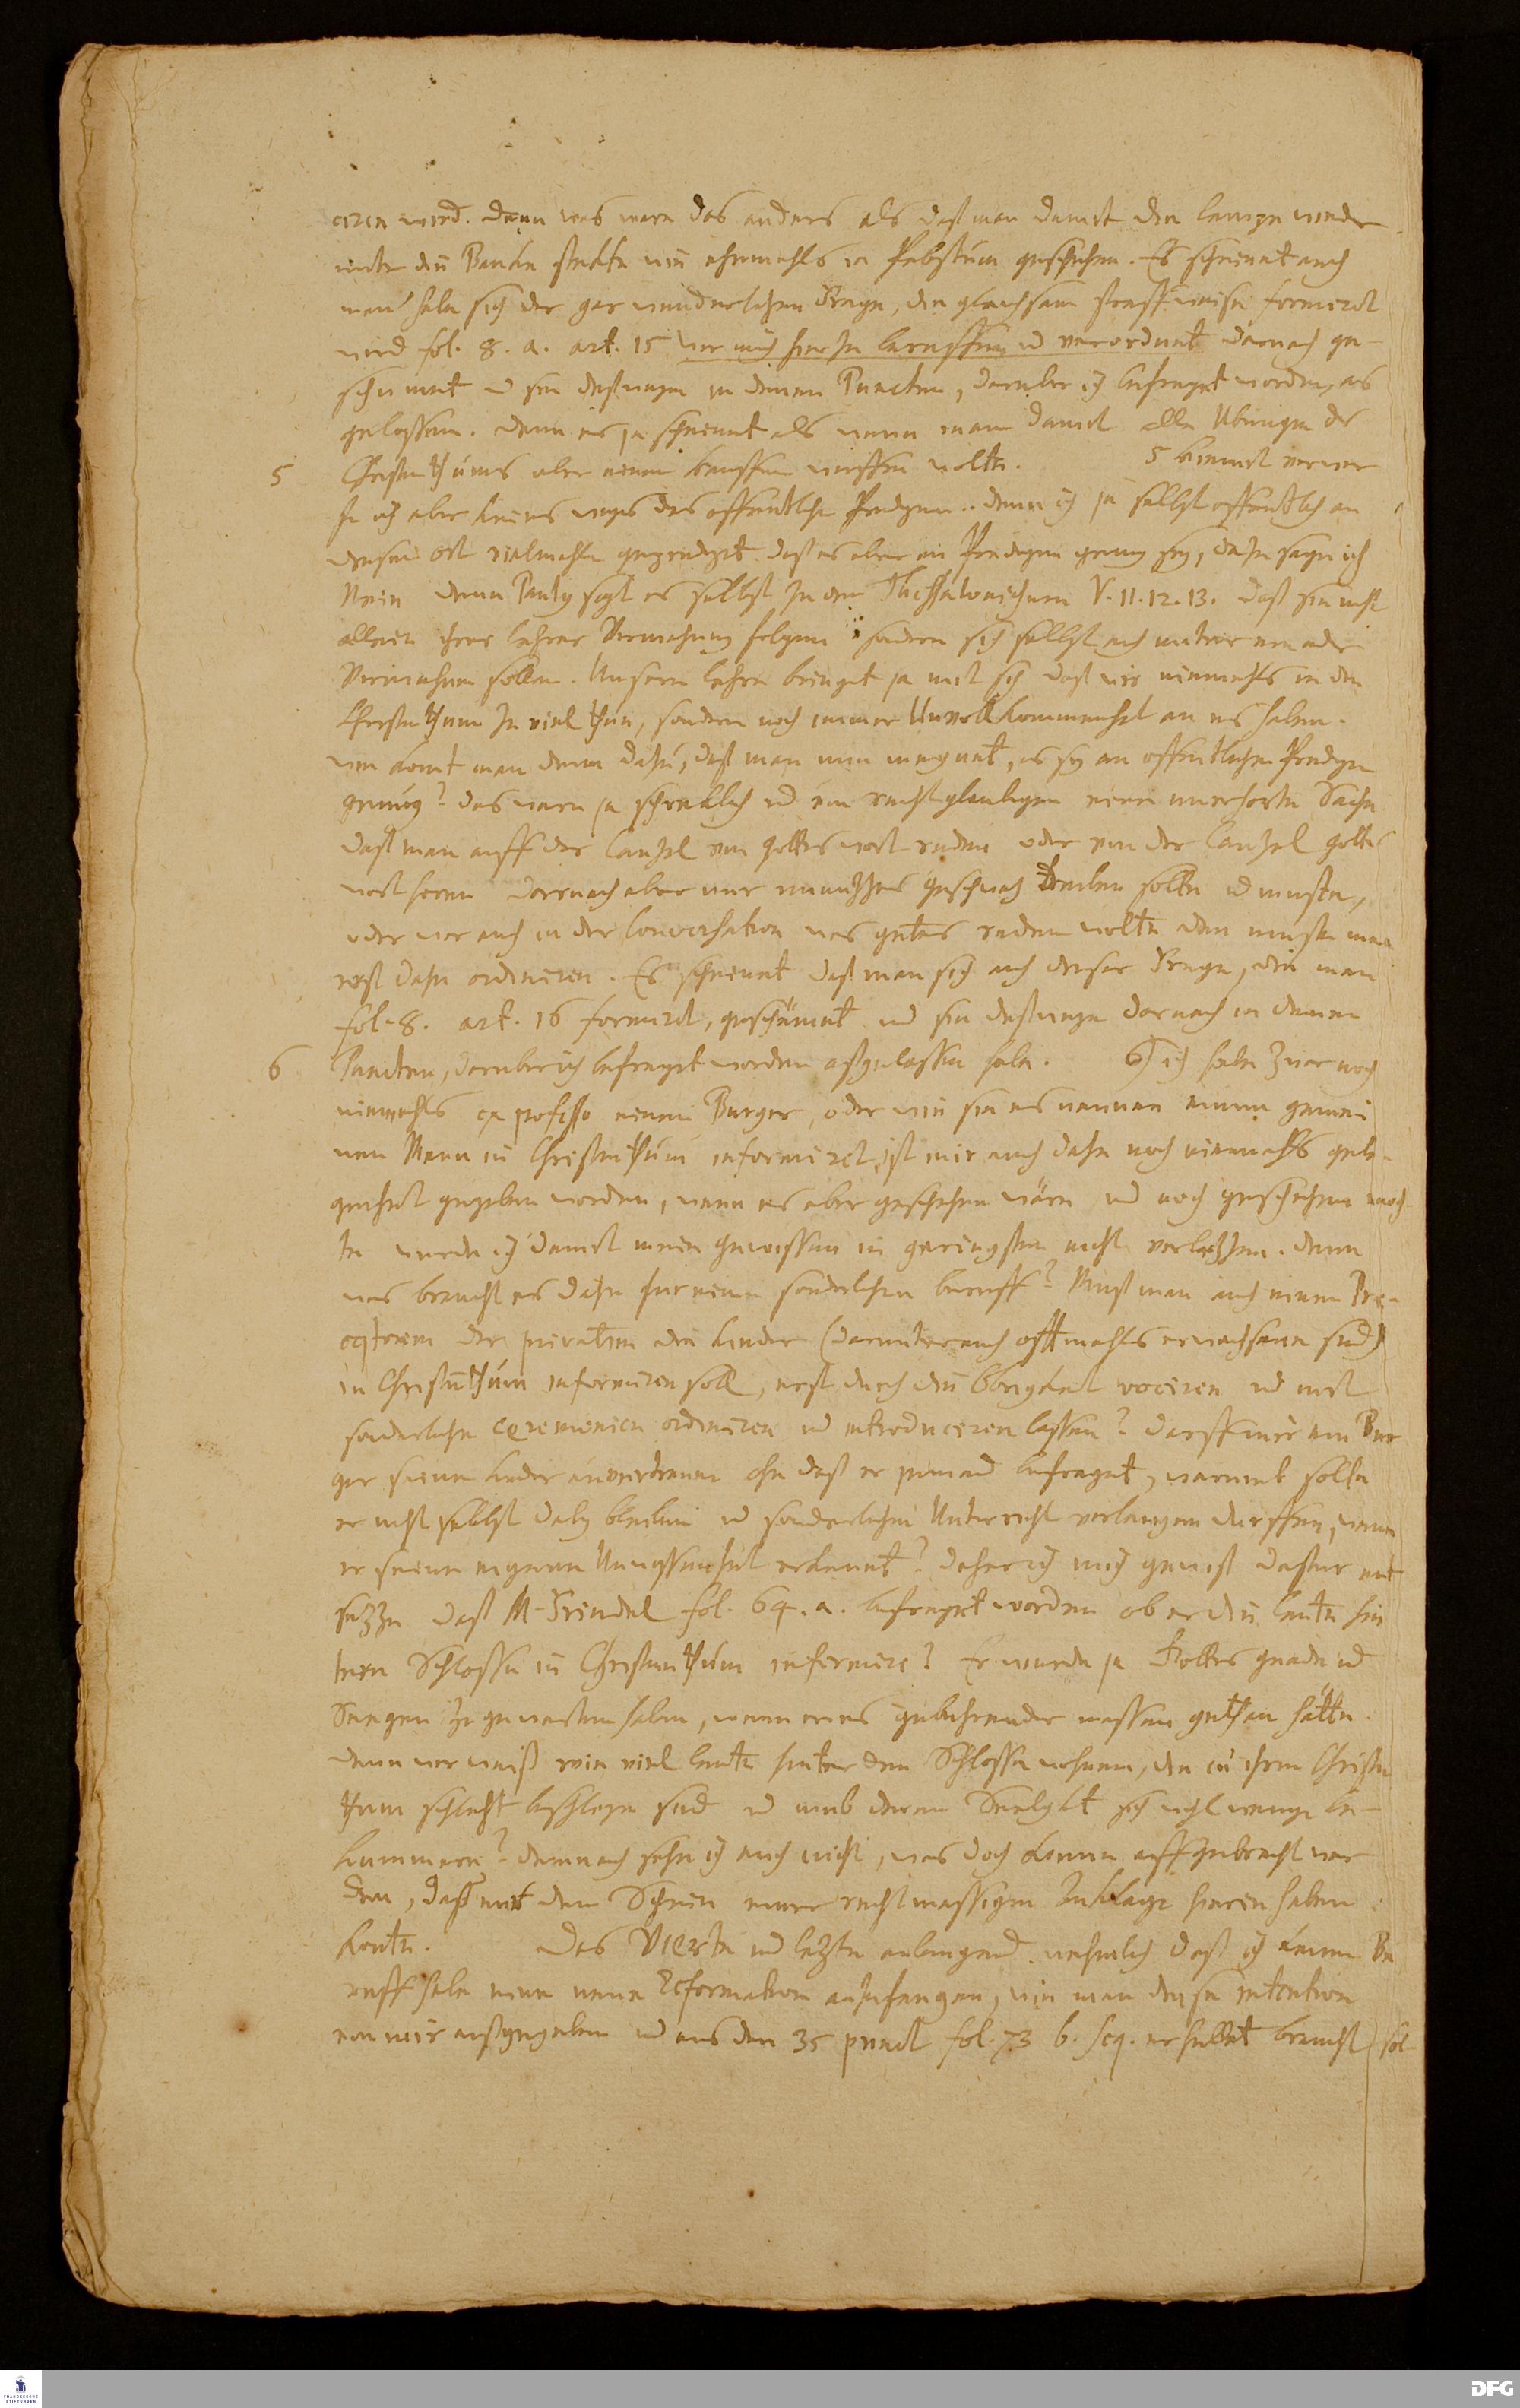 ciren wird. denn was ware das anders als daß man damit die lampe wieder
unter die Bancke steckte wie ehemahls in Pabstum geschehen. Es scheinet auch
man habe sich der gar wunderlichen Frage, die gleichsam formiret
wird fol. 8. a. art. 15 wer mich hierzu beruffen ud verordnet darnach ge-
schämet ud sie deßwegen in denen Puncten, daruber ich befraget worden, aus
gelassen. denn es ja scheinet als wenn man damit alle Ubungen des
5 Christenthums uber einen hauffen werffen wolte. 5
ich aber keines weges das offentliche Predigen. denn ich ja selbst offentlich an
diesem ort vielmahls geprediget. daß es aber am Predigen genug sey, dazu sage ich
Nein denn Paulus sagt es selbst zu den Thessalonichern V. 11. 12. 13. daß sie nicht
allein ihrer lehrer Vermahnung folgen sondern sich selbst auch unter einander
Vermahnen sollen. Unsere lehre bringet ja mit sich daß wir niemahls in dem
Christenthum zu viel thun, sondern noch immer Unvollkommenheit an uns haben.
wie komt man denn dazu, daß man nun meynet, es sey am offentlichen Predigen
genug? das ware ja schrecklich ud ein recht glaubigen eine unerhorte Sache
daß man auff der Cantzel von Gottes wort reden oder von der Cantzel Gottes
wort horen darnach aber nur unnützes geschwatz treiben solte ud muste,
oder wer auch in der Conversation was gutes reden wolte den muste man
erst dazu ordiniren. Es scheinet daß man sich auch dieser Frage, die man
fol. 8. art. 16 formiret, geschämet ud sie deßwegen darnach in denen
6 Puncten, daruber ich befraget worden ausgelassen habe. 6) ich habe zwar noch
niemahls ex professo einen Burger, oder wie sie es nennen einen gemei
nen Mann in Christenthum informiret, ist mir auch dazu noch niemahls gele-
genheit gegeben worden, wenn es aber geschehen wäre ud noch geschehen moch
te wurde ich damit mein gewissen im geringsten nicht verletzen. denn
was braucht es dazu fur einen sonderlichen beruff? Muß man auch einen Pre-
ceptorem der privatim die Kinder (darunter auch offtmahls erwachsene sind)
in Christenthum informiren soll, erst durch die Obrigkeit vociren ud mit
sonderlichen ceremonien ordiniren ud introduciren lassen? Darff mir ein Bur
ger seine kinder anvertrauen ohn daß er jemand befraget, warumb solte
er nicht selbst dabey bleiben ud sonderlichen Unterricht verlangen durffen, wenn
er seine eigene Unwissenheit erkennet? daher ich mich gewiß dafur ent
setze daß M. Friedel fol. 64. a. befraget worden ob er die leute hin
term Schlosse in Christenthum informire? Er wurde ja Gottes gnade ud
Seegen zu gewarten haben, wenn er es gebuhrender massen gethan hätte.
denn wer weiß wie viel leute hinter dem Schlosse wohnen, die in ihrem Christen
thum schlecht beschlagen sind ud umb deren Seeligkeit sich wohl wenige be-
kummern? demnach sehe ich auch nicht, was doch konne auffgebracht wer
den, daß mit dem Schein einer rechtmassigen Anklage hierin haben
konte. Das Vierte ud letzte anlangend nehmlich daß ich keinen Be
ruff habe eine neue Reformation anzufangen, wie man diese intention
von mir ausgegeben ud aus den 35 punct fol. 73 b. seq. erhellet braucht